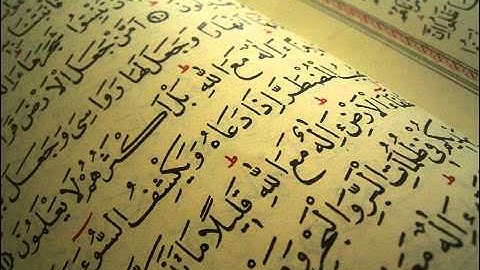 تُنْبِتُوا شَجَرَهَا
أَمَّنْ جَعَلَ الْأَرْضَ
وَجَعَلَ لَهَا رَوَاسِيَ وَجَعَلَ
ءَإِلَٰهٌ مَعَ اللَّهِ بَلْ أَكْثَرُهُمْ لَا يَعْلَمُونَ
الْمُضْطَرَّ إِذَا دَعَاهُ وَيَكْشِفُ السُّوءَ
الْأَرْضِ ءَإِلَٰهٌ مَعَ اللَّهِ قَلِيلًا مَا
ظُلُمَاتِ الْبَرِّ وَالْبَحْرِ
ءَإِلَٰهٌ مَعَ